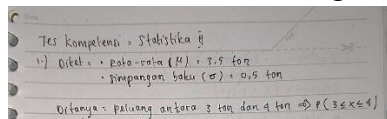 Tes Kompetensi, Statistika
1.) Diket : • Rata-rata (μ) = 3,5 ton
• Simpangan baku (σ) = 0,5 ton
Ditanya = peluang antara 3 ton dan 4 ton => P (3 ≤ x ≤ 4)